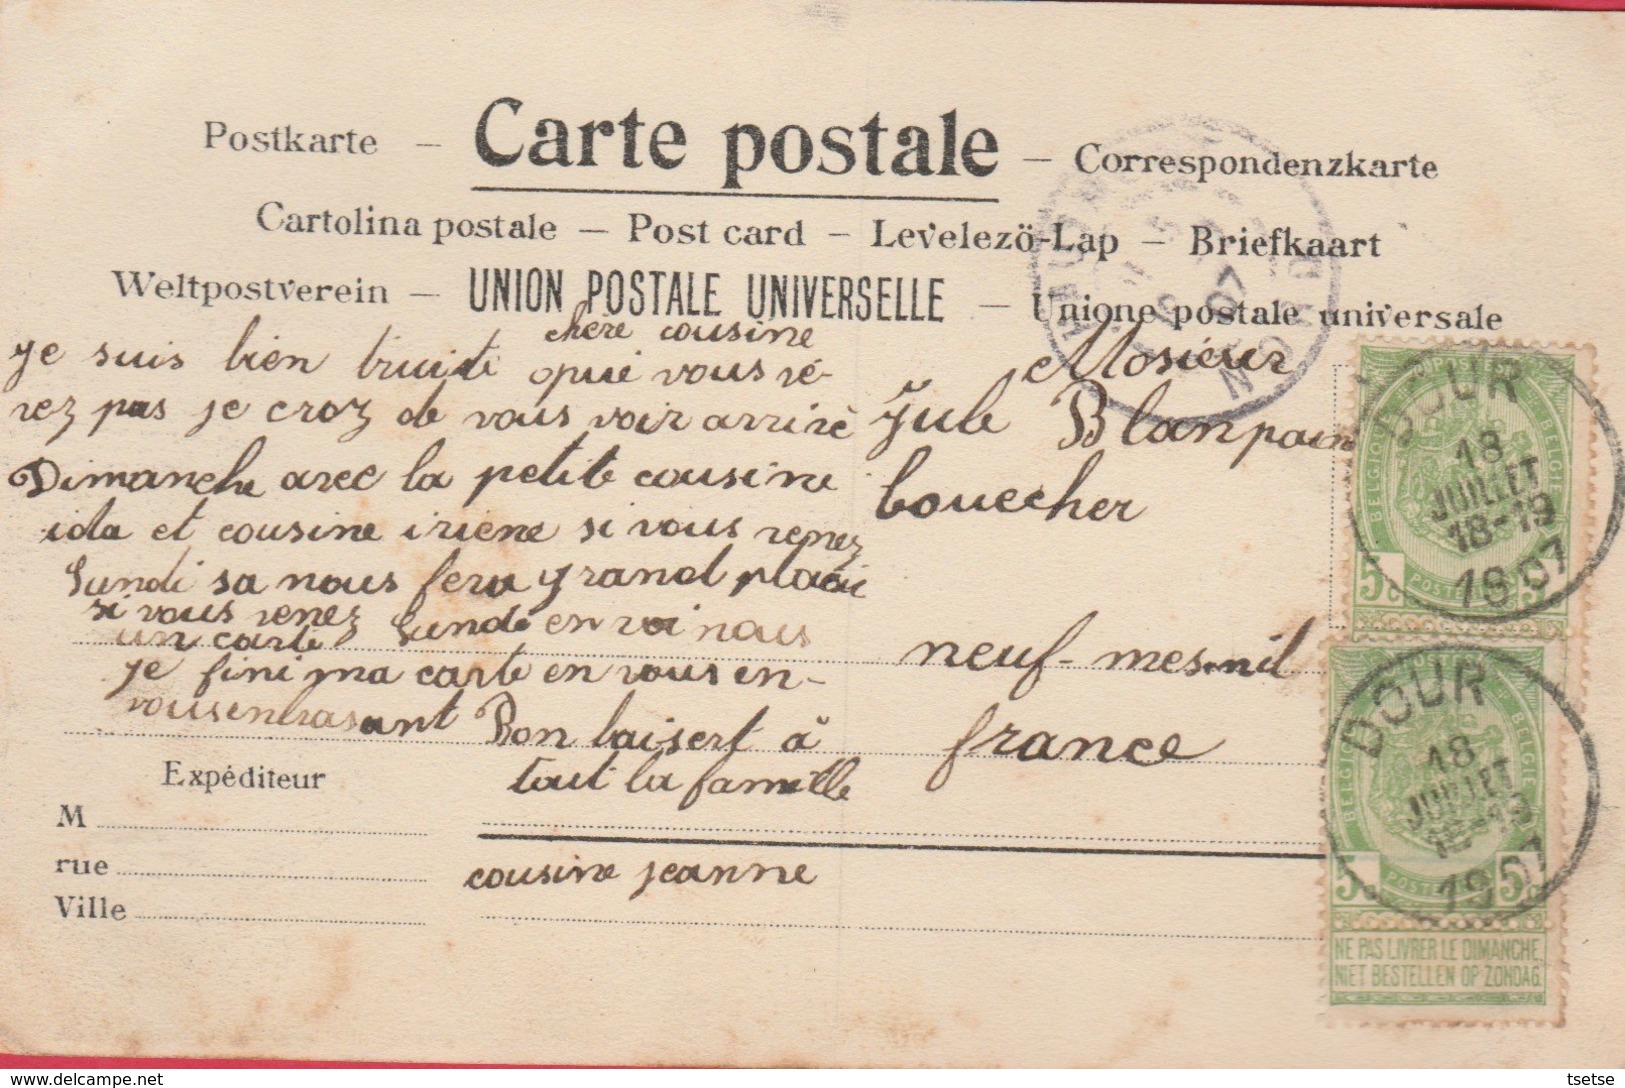 Postkarte – Carte postale – Correspondenzkarte
Cartolina postale – Post card – Levelezö-Lap – Briefkaart
Weltpostverein – UNION POSTALE UNIVERSELLE – Unione postale universale
chère cousine
je suis bien truite opui vous vé-
rez pas je croz de vous voir arrivè
Dimanche avec la petite cousine
ida et cousine iriene si vous venez
Lundi sa nous fera grand plaaic
si vous venez Lundi envoi nous
un carte
je fini ma carte en vous en-
vousenbrasant Bon baisert à
tout la famille
cousine jeanne
Mosieur
Jule Blanpain
bouecher
neuf-mesnil
france
Expéditeur
M
rue
Ville
DOUR
18
JUILLET
18-19
1907
DOUR
18
JUILLET
18-19
1907
07
NORD
POSTES
BELGIQUE
BELGIE
5c
POSTERIJEN
BELGIQUE
BELGIE
5c
5c
POSTERIJEN
NE PAS LIVRER LE DIMANCHE
NIET BESTELLEN OP ZONDAG
delcampe.net
tsetse